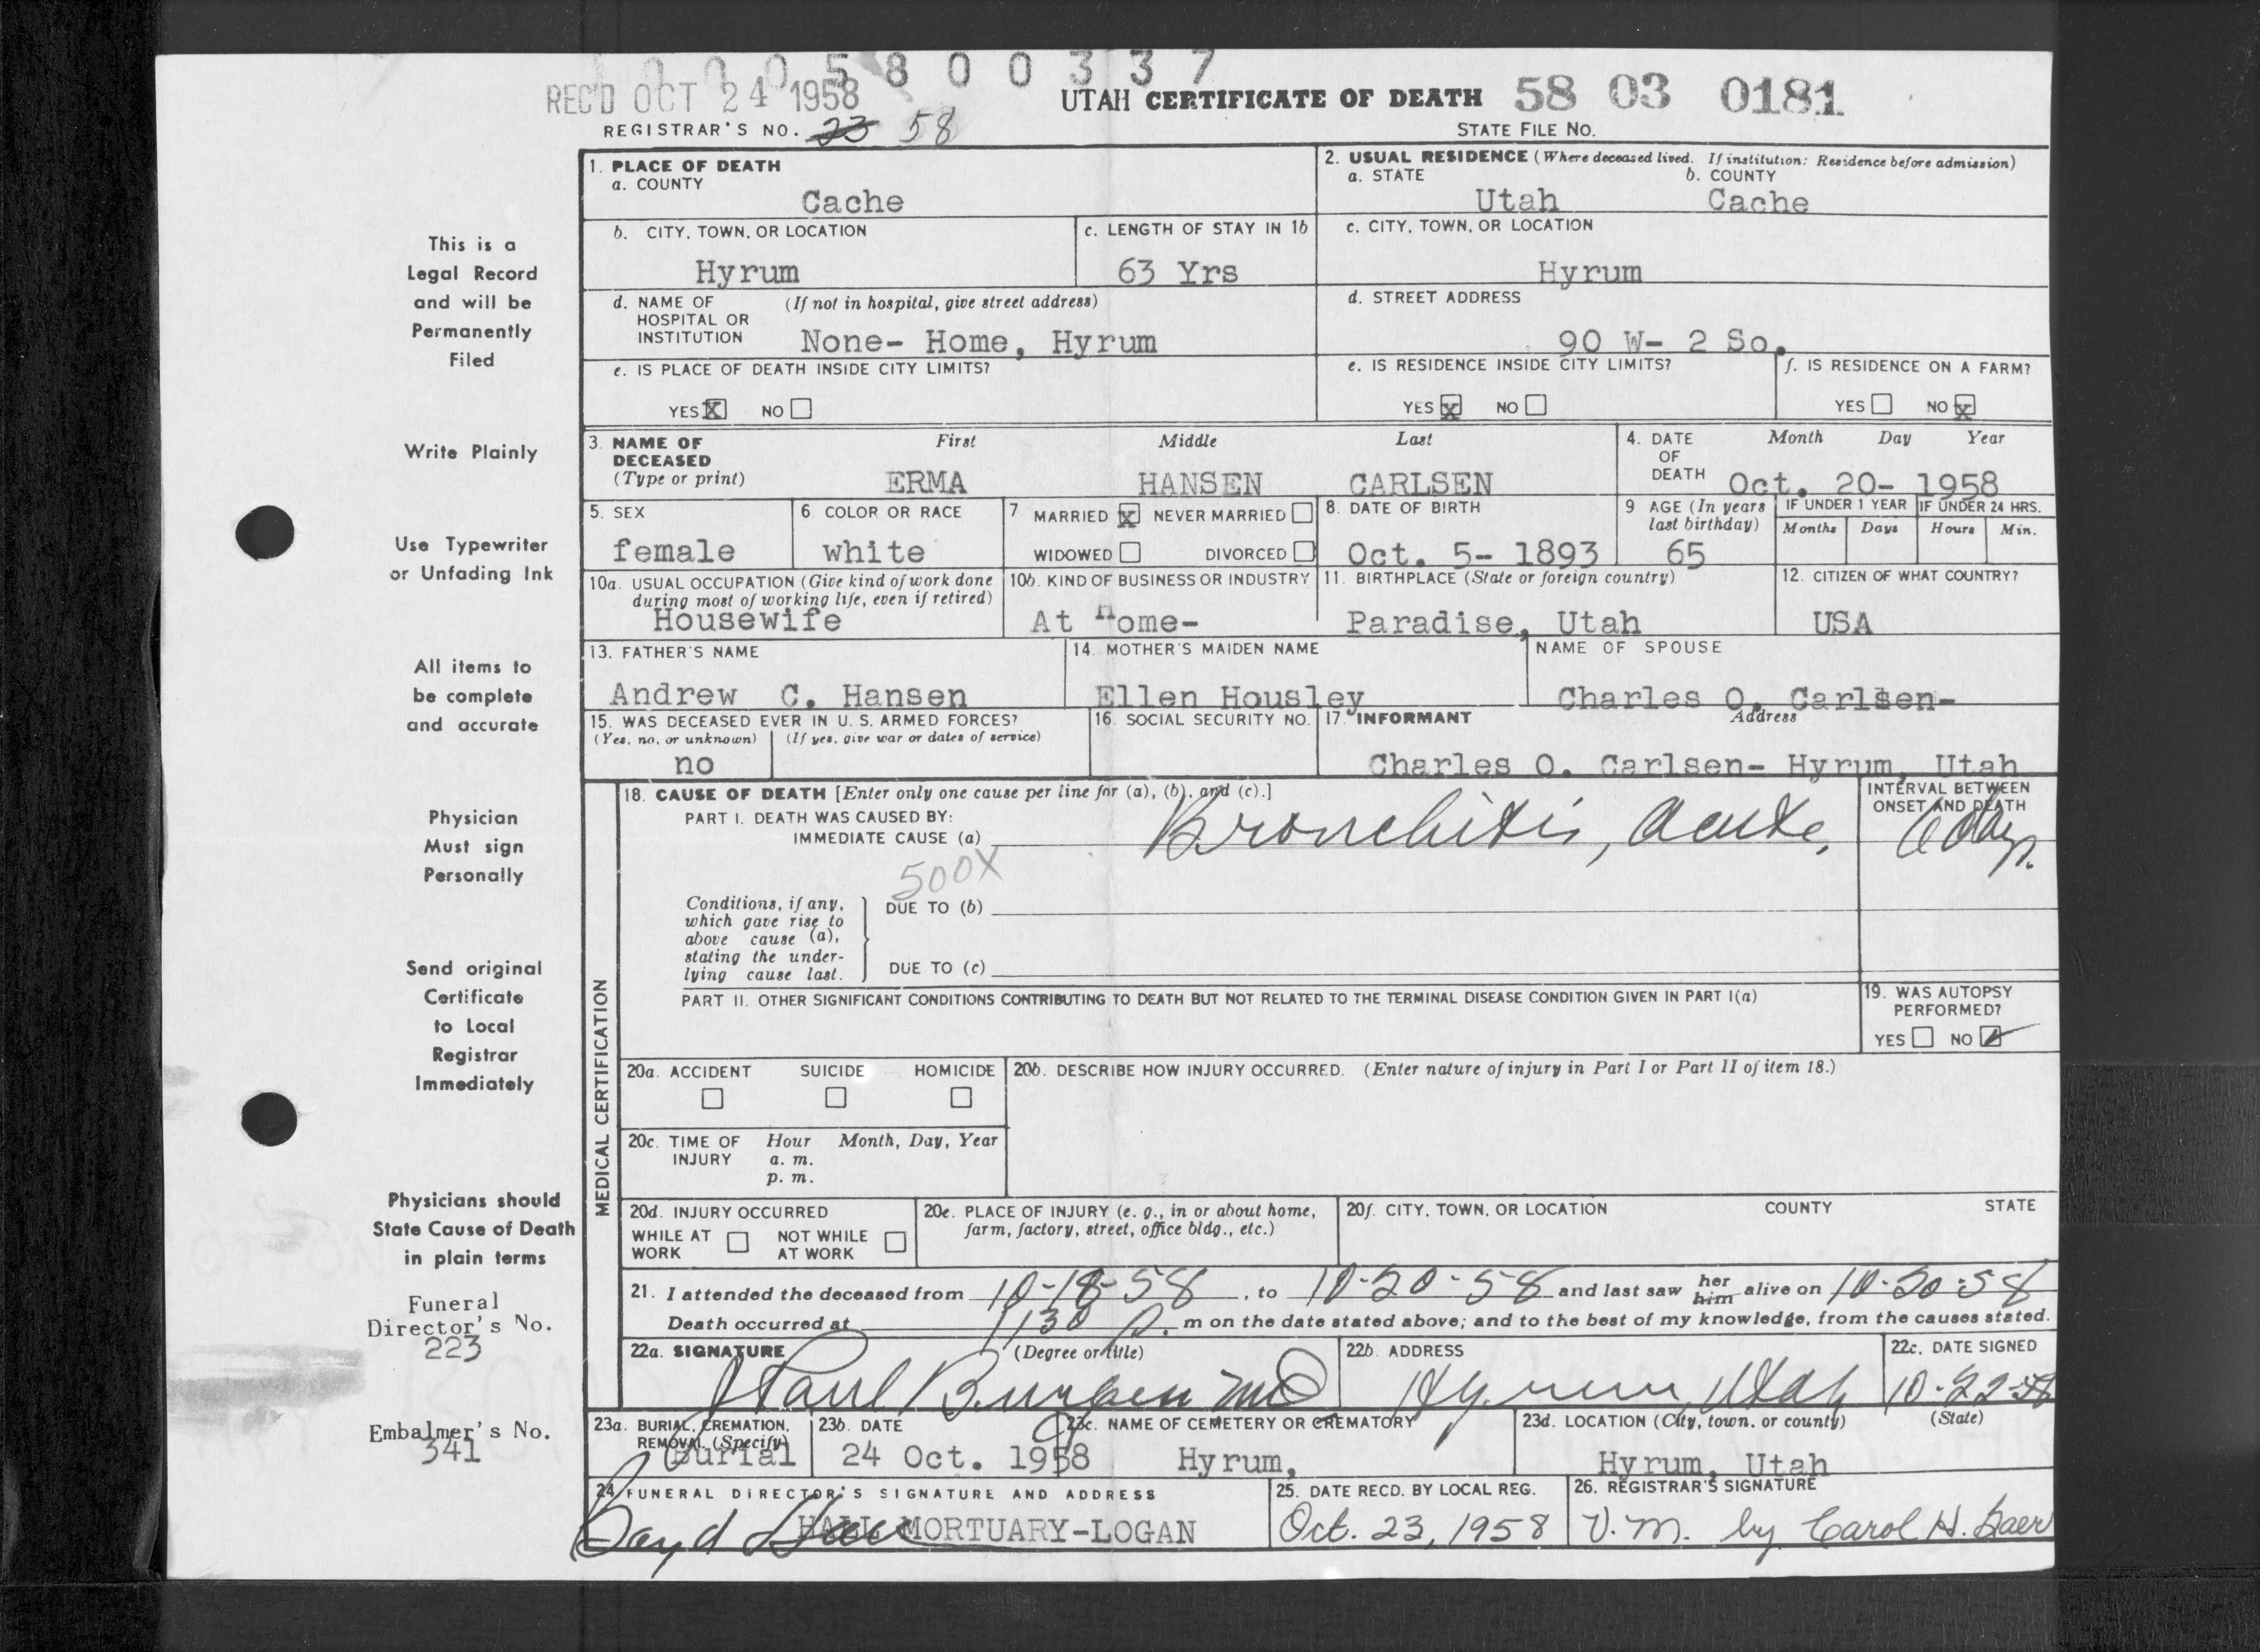 1 0 0 0 5 8 0 0 3 3 7
REC'D OCT 24 1958
UTAH CERTIFICATE OF DEATH 58 03 0181
REGISTRAR'S NO. 23 58
STATE FILE No.
This is a
Legal Record
and will be
Permanently
Filed
Write Plainly
Use Typewriter
or Unfading Ink
All items to
be complete
and accurate
Physician
Must sign
Personally
Send original
Certificate
to Local
Registrar
Immediately
Physicians should
State Cause of Death
in plain terms
Funeral
Director's No.
223
Embalmer's No.
341
1. PLACE OF DEATH
a. COUNTY
Cache
2. USUAL RESIDENCE (Where deceased lived. If institution: Residence before admission)
a. STATE b. COUNTY
Utah Cache
b. CITY, TOWN, OR LOCATION
Hyrum
c. LENGTH OF STAY IN 1b
63 Yrs
c. CITY, TOWN, OR LOCATION
Hyrum
d. NAME OF (If not in hospital, give street address)
HOSPITAL OR
INSTITUTION None- Home, Hyrum
d. STREET ADDRESS
90 W- 2 So.
e. IS PLACE OF DEATH INSIDE CITY LIMITS?
YES X NO
e. IS RESIDENCE INSIDE CITY LIMITS?
YES X NO
f. IS RESIDENCE ON A FARM?
YES NO X
3. NAME OF First Middle Last
DECEASED
(Type or print) ERMA HANSEN CARLSEN
4. DATE Month Day Year
OF
DEATH Oct. 20- 1958
5. SEX
female
6. COLOR OR RACE
white
7. MARRIED X NEVER MARRIED
WIDOWED DIVORCED
8. DATE OF BIRTH
Oct. 5- 1893
9 AGE (In years
last birthday)
65
IF UNDER 1 YEAR
Months Days
IF UNDER 24 HRS.
Hours Min.
10a. USUAL OCCUPATION (Give kind of work done
during most of working life, even if retired)
Housewife
10b. KIND OF BUSINESS OR INDUSTRY
At Home-
11. BIRTHPLACE (State or foreign country)
Paradise, Utah
12. CITIZEN OF WHAT COUNTRY?
USA
13. FATHER'S NAME
Andrew C. Hansen
14. MOTHER'S MAIDEN NAME
Ellen Housley
NAME OF SPOUSE
Charles O. Carlsen-
15. WAS DECEASED EVER IN U. S. ARMED FORCES?
(Yes, no, or unknown) (If yes, give war or dates of service)
no
16. SOCIAL SECURITY NO.
17. INFORMANT Address
Charles O. Carlsen- Hyrum, Utah
MEDICAL CERTIFICATION
18. CAUSE OF DEATH [Enter only one cause per line for (a), (b), and (c).]
PART I. DEATH WAS CAUSED BY:
IMMEDIATE CAUSE (a) Bronchitis, acute,
INTERVAL BETWEEN
ONSET AND DEATH
6 days.
500X
Conditions, if any,
which gave rise to
above cause (a),
stating the under-
lying cause last.
DUE TO (b)
DUE TO (c)
PART II. OTHER SIGNIFICANT CONDITIONS CONTRIBUTING TO DEATH BUT NOT RELATED TO THE TERMINAL DISEASE CONDITION GIVEN IN PART I(a)
19. WAS AUTOPSY
PERFORMED?
YES NO
20a. ACCIDENT SUICIDE HOMICIDE
20b. DESCRIBE HOW INJURY OCCURRED. (Enter nature of injury in Part I or Part II of item 18.)
20c. TIME OF Hour Month, Day, Year
INJURY a. m.
p. m.
20d. INJURY OCCURRED
WHILE AT NOT WHILE
WORK AT WORK
20e. PLACE OF INJURY (e. g., in or about home,
farm, factory, street, office bldg., etc.)
20f. CITY, TOWN, OR LOCATION COUNTY STATE
21. I attended the deceased from 10-18-58, to 10-20-58 and last saw her him alive on 10-20-58
Death occurred at 1130 p. m on the date stated above; and to the best of my knowledge, from the causes stated.
22a. SIGNATURE (Degree or title)
Paul MD
22b. ADDRESS
Hyrum, Utah
22c. DATE SIGNED
10-22-58
23a. BURIAL, CREMATION,
REMOVAL (Specify)
Burial
23b. DATE
24 Oct. 1958
23c. NAME OF CEMETERY OR CREMATORY
Hyrum,
23d. LOCATION (City, town, or county) (State)
Hyrum, Utah
24 FUNERAL DIRECTOR'S SIGNATURE AND ADDRESS
HALL MORTUARY-LOGAN
25. DATE RECD. BY LOCAL REG.
Oct. 23, 1958
26. REGISTRAR'S SIGNATURE
V. M. by Carol H. Baer